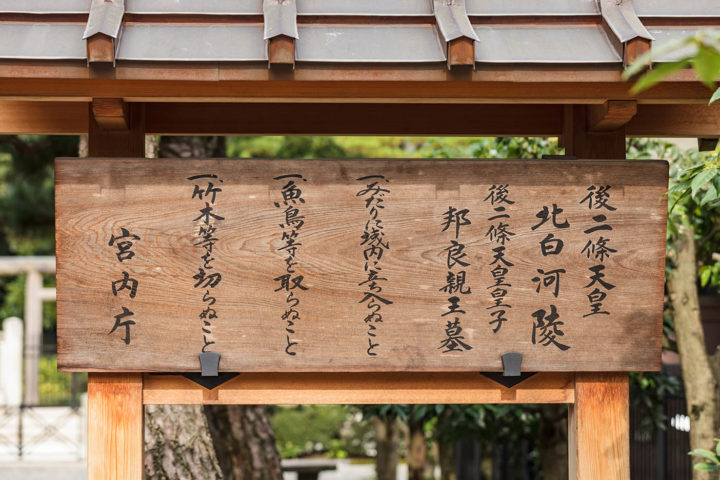 後二條天皇
北白河陵
後二條天皇皇子
邦良親王墓
一、みだりに域内に立ち入らぬこと
一、魚鳥等を取らぬこと
一、竹木等を切らぬこと
宮内庁